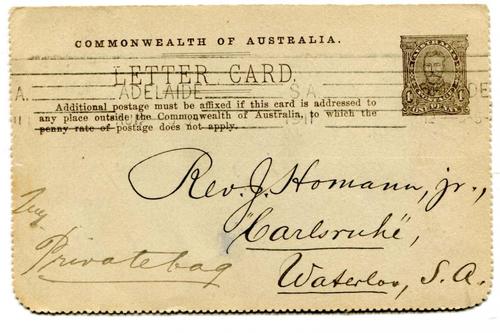 COMMONWEALTH OF AUSTRALIA.
LETTER CARD.
ADELAIDE S.A.
Additional postage must be affixed if this card is addressed to
any place outside the Commonwealth of Australia, to which the
penny rate of postage does not apply.
1911
Rev. J. Homann, jr.,
"Carlsruhe",
Waterloo, S. A.
Privatebag